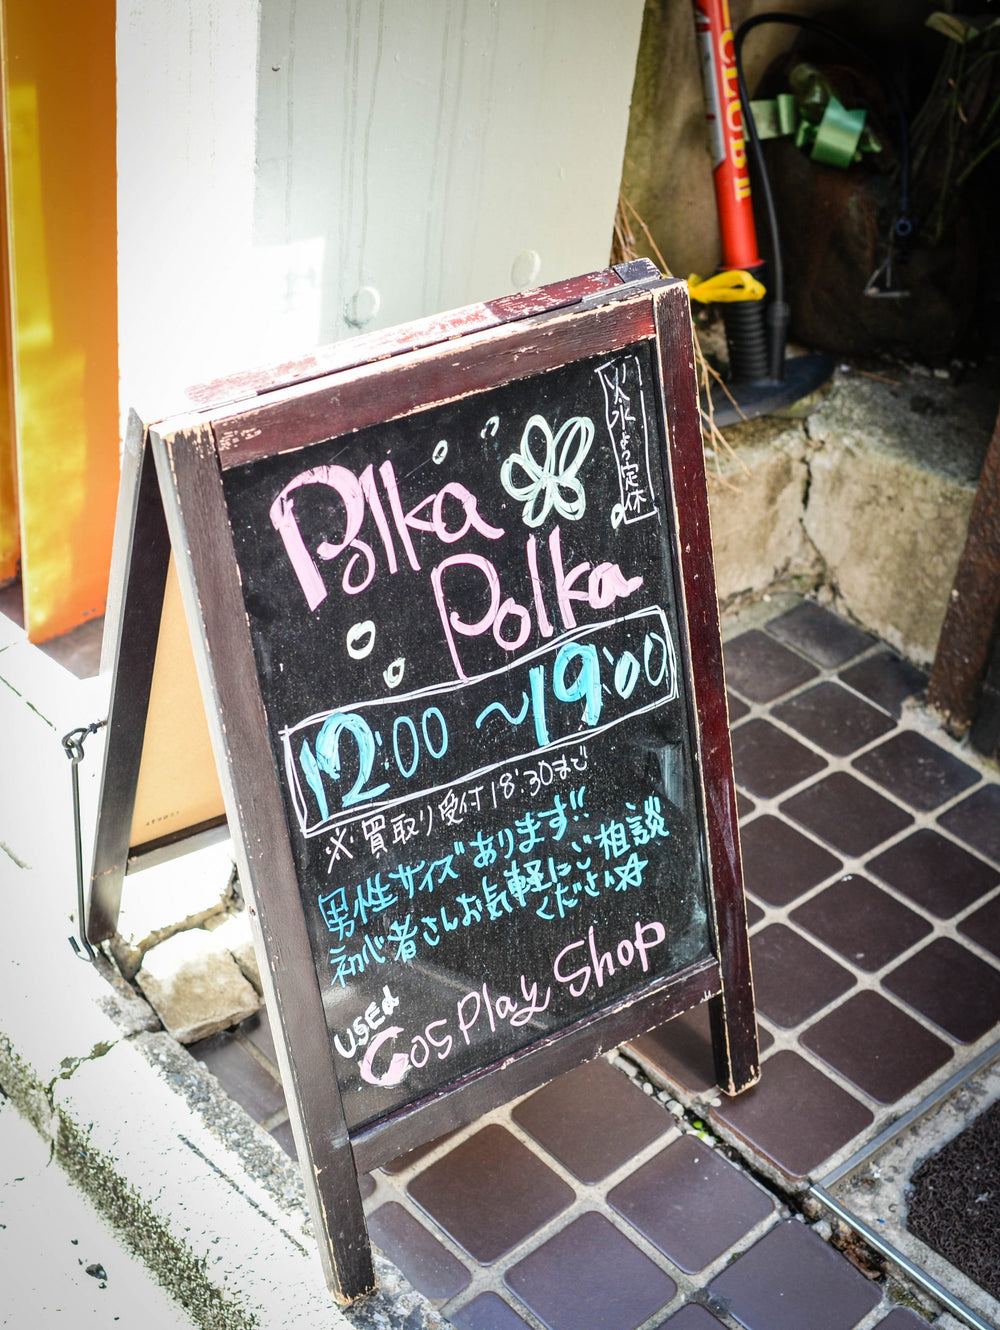 火水よう定休
Polka
Polka
12:00～19:00
※買取り受付18:30まで
男性サイズあります!!
初心者さんお気軽にご相談
ください☆
USED
CosPlay Shop